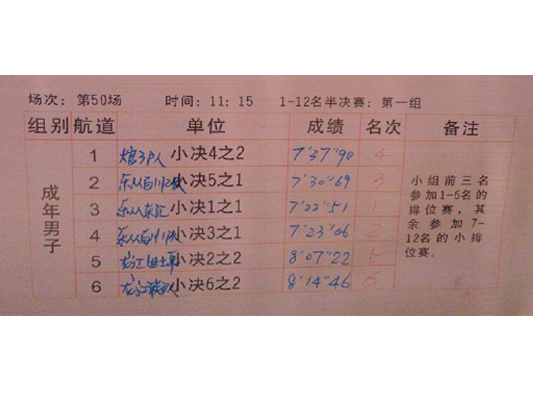 场次：第50场 时间：11：15 1-12名半决赛：第一组
组别 航道 单位 成绩 名次 备注
成年男子
1 小决4之2 7'37"90 4
2 小决5之1 7'30"69 3
3 小决1之1 7'22"51 1
4 小决3之1 7'23"06 2
5 小决2之2 8'07"22 5
6 小决6之2 8'14"46 6
小组前三名
参加1-6名的
排位赛，其
余参加7-
12名的小排
位赛。